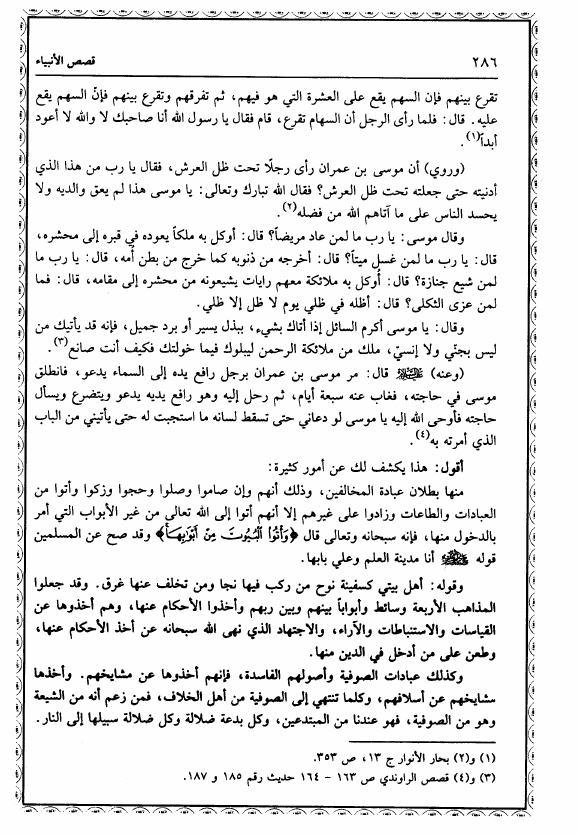 ٢٨٦ قصص الأنبياء
تقرع بينهم فإن السهم يقع على العشرة التي هو فيهم، ثم تفرقهم وتقرع بينهم فإنّ السهم يقع
عليه. قال: فلما رأى الرجل أن السهام تقرع، قام فقال يا رسول الله أنا صاحبك لا والله لا أعود
أبداً(١).
(وروي) أن موسى بن عمران رأى رجلًا تحت ظل العرش، فقال يا رب من هذا الذي
أدنيته حتى جعلته تحت ظل العرش؟ فقال الله تبارك وتعالى: يا موسى هذا لم يعق والديه ولا
يحسد الناس على ما آتاهم الله من فضله(٢).
وقال موسى: يا رب ما لمن عاد مريضاً؟ قال: أوكل به ملكاً يعوده في قبره إلى محشره،
قال: يا رب ما لمن غسل ميتاً؟ قال: أخرجه من ذنوبه كما خرج من بطن أمه، قال: يا رب ما
لمن شيع جنازة؟ قال: أُوكل به ملائكة معهم رايات يشيعونه من محشره إلى مقامه، قال: فما
لمن عزى الثكلى؟ قال: أظله في ظلي يوم لا ظل إلا ظلي.
وقال: يا موسى أكرم السائل إذا أتاك بشيء، ببذل يسير أو برد جميل، فإنه قد يأتيك من
ليس بجنّي ولا إنسيّ، ملك من ملائكة الرحمن ليبلوك فيما خولتك فكيف أنت صانع(٣).
(وعنه) عليه السلام قال: مر موسى بن عمران برجل رافع يده إلى السماء يدعو، فانطلق
موسى في حاجته، فغاب عنه سبعة أيام، ثم رحل إليه وهو رافع يديه يدعو ويتضرع ويسأل
حاجته فأوحى الله إليه يا موسى لو دعاني حتى تسقط لسانه ما استجبت له حتى يأتيني من الباب
الذي أمرته به(٤).
أقول: هذا يكشف لك عن أمور كثيرة:
منها بطلان عبادة المخالفين، وذلك أنهم وإن صاموا وصلوا وحجوا وزكوا وأتوا من
العبادات والطاعات وزادوا على غيرهم إلا أنهم أتوا إلى الله تعالى من غير الأبواب التي أمر
بالدخول منها، فإنه سبحانه وتعالى قال ﴿وَأْتُوا الْبُيُوتَ مِنْ أَبْوَابِهَا﴾ وقد صح عن المسلمين
قوله ﷺ أنا مدينة العلم وعلي بابها.
وقوله: أهل بيتي كسفينة نوح من ركب فيها نجا ومن تخلف عنها غرق. وقد جعلوا
المذاهب الأربعة وسائط وأبواباً بينهم وبين ربهم وأخذوا الأحكام عنها، وهم أخذوها عن
القياسات والاستنباطات والآراء، والاجتهاد الذي نهى الله سبحانه عن أخذ الأحكام عنها،
وطعن على من أدخل في الدين منها.
وكذلك عبادات الصوفية وأصولهم الفاسدة، فإنهم أخذوها عن مشايخهم. وأخذها
مشايخهم عن أسلافهم، وكلما تنتهي إلى الصوفية من أهل الخلاف، فمن زعم أنه من الشيعة
وهو من الصوفية، فهو عندنا من المبتدعين، وكل بدعة ضلالة وكل ضلالة سبيلها إلى النار.
(١) و(٢) بحار الأنوار ج ١٣، ص ٣٥٣.
(٣) و(٤) قصص الراوندي ص ١٦٣ - ١٦٤ حديث رقم ١٨٥ و ١٨٧.